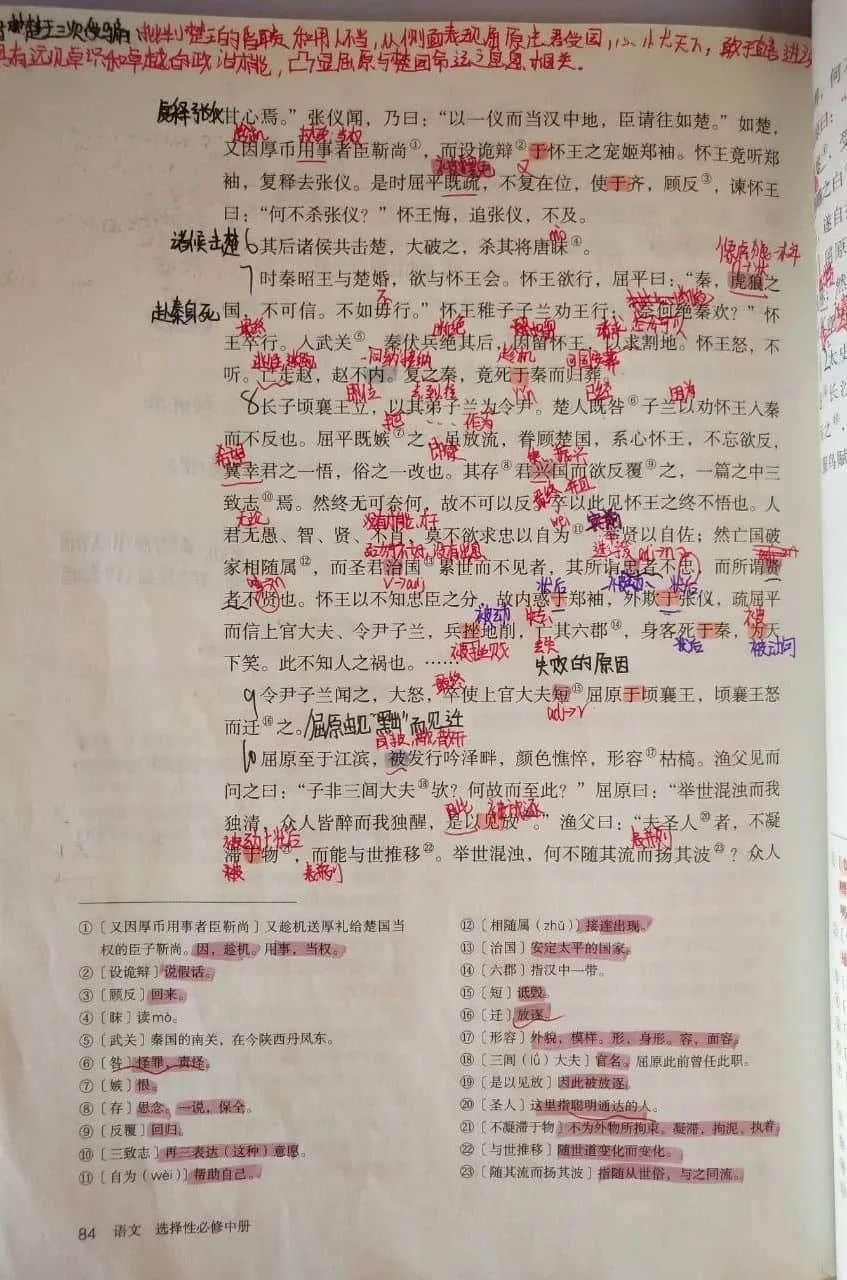 楚王三次受骗 批判楚王的昏聩和用人不当，从侧面表现屈原忠君爱国，心忧天下，敢于直言进
具有远见卓识和卓越的政治才能，凸显屈原与楚国命运息息相关。
复释张仪
甘心焉。”张仪闻，乃曰：“以一仪而当汉中地，臣请往如楚。”如楚，
趁机 执政、当权
又因厚币用事者臣靳尚①，而设诡辩②于怀王之宠姬郑袖。怀王竟听郑
袖，复释去张仪。是时屈平既疏，不复在位，使于齐，顾反③，谏怀王
曰：“何不杀张仪？”怀王悔，追张仪，不及。
诸侯击楚
mò
6 其后诸侯共击楚，大破之，杀其将唐眛④。
7 时秦昭王与楚婚，欲与怀王会。怀王欲行，屈平曰：“秦，虎狼之
赴秦身死
不
国，不可信。不如毋行。”怀王稚子子兰劝王行：“奈何绝秦欢？”怀
最终 断绝
王卒行。入武关⑤，秦伏兵绝其后，因留怀王，以求割地。怀王怒，不
趁机
听。亡走赵，赵不内。复之秦，竟死于秦而归葬。
因为
8 长子顷襄王立，以其弟子兰为令尹。楚人既咎⑥子兰以劝怀王入秦
把 作为
而不反也。屈平既嫉⑦之，虽放流，眷顾楚国，系心怀王，不忘欲反，
希望
冀幸君之一悟，俗之一改也。其存⑧君兴国而欲反覆⑨之，一篇之中三
致志⑩焉。然终无可奈何，故不可以反，卒以此见怀王之终不悟也。人
无论 wèi
君无愚、智、贤、不肖，莫不欲求忠以自为⑪，举贤以自佐；然亡国破
选拔 adj→n
家相随属⑫，而圣君治国⑬累世而不见者，其所谓忠者不忠，而所谓贤
v→adj 状后 状后
者不贤也。怀王以不知忠臣之分，故内惑于郑袖，外欺于张仪，疏屈平
被动 失去
而信上官大夫、令尹子兰，兵挫地削，亡其六郡⑭，身客死于秦，为天
被
失去 状后 被动
下笑。此不知人之祸也。……
失败的原因
最终
9 令尹子兰闻之，大怒，卒使上官大夫短⑮屈原于顷襄王，顷襄王怒
adj→v
而迁⑯之。
屈原由“黜”而见迁
10 屈原至于江滨，被发行吟泽畔，颜色憔悴，形容⑰枯槁。渔父见而
问之曰：“子非三闾大夫⑱欤？何故而至此？”屈原曰：“举世混浊而我
因此 被放逐
独清，众人皆醉而我独醒，是以见放⑲。”渔父曰：“夫圣人⑳者，不凝
被动+状后 表承列
滞于物㉑，而能与世推移㉒。举世混浊，何不随其流而扬其波㉓？众人
被
①〔又因厚币用事者臣靳尚〕又趁机送厚礼给楚国当
权的臣子靳尚。因，趁机。用事，当权。
②〔设诡辩〕说假话。
③〔顾反〕回来。
④〔眛〕读mò。
⑤〔武关〕秦国的南关，在今陕西丹凤东。
⑥〔咎〕怪罪，责怪。
⑦〔嫉〕恨。
⑧〔存〕思念。一说，保全。
⑨〔反覆〕回归。
⑩〔三致志〕再三表达（这种）意愿。
⑪〔自为（wèi）〕帮助自己。
⑫〔相随属（zhǔ）〕接连出现。
⑬〔治国〕安定太平的国家。
⑭〔六郡〕指汉中一带。
⑮〔短〕诋毁。
⑯〔迁〕放逐。
⑰〔形容〕外貌，模样。形，身形。容，面容。
⑱〔三闾（lǘ）大夫〕官名。屈原此前曾任此职。
⑲〔是以见放〕因此被放逐。
⑳〔圣人〕这里指聪明通达的人。
㉑〔不凝滞于物〕不为外物所拘束。凝滞，拘泥，执着。
㉒〔与世推移〕随世道变化而变化。
㉓〔随其流而扬其波〕指随从世俗，与之同流。
84 语文 选择性必修中册